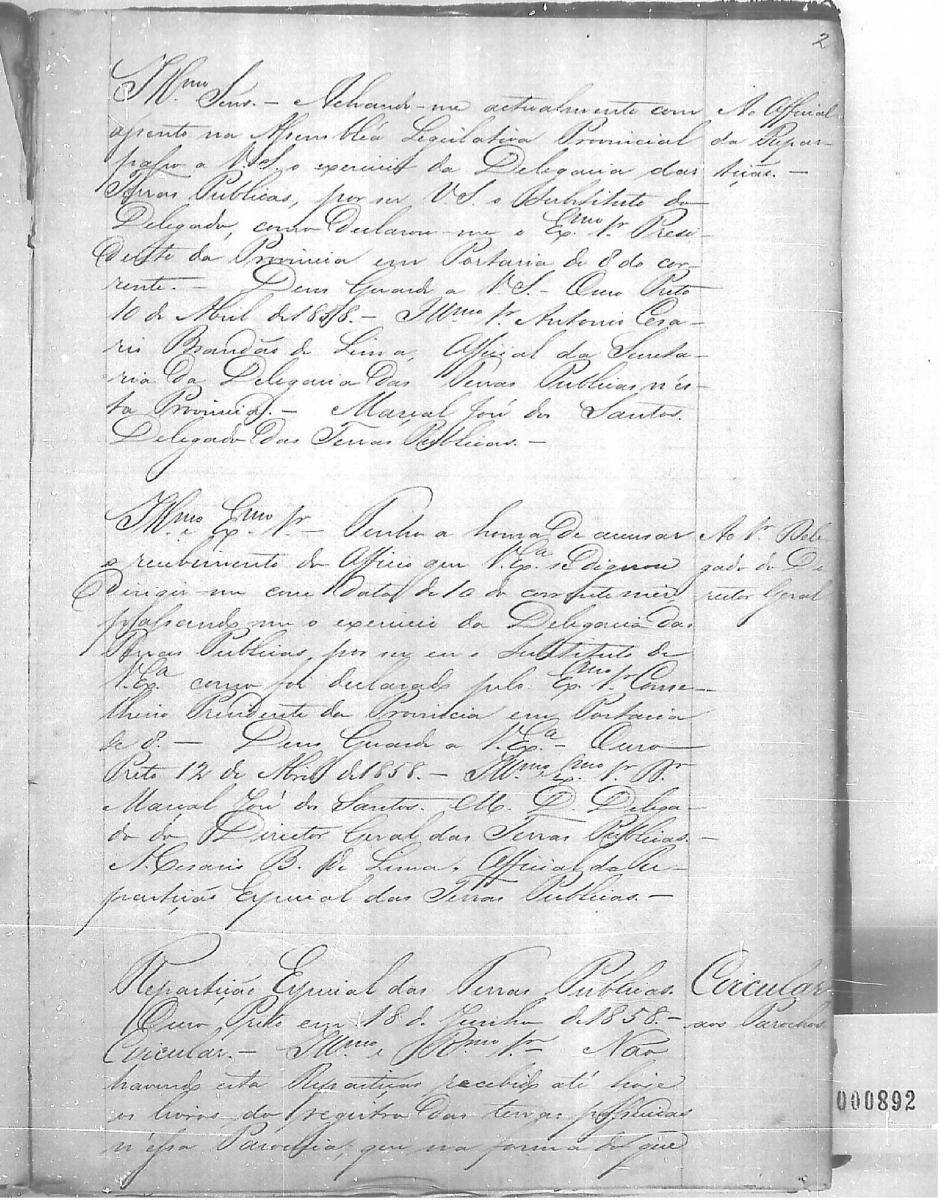 2
Illmo Snr. - Achando-me actualmente com
assento na Assemblea Legislativa Provincial
passo a V. S. o exercicio da Delegacia das
Terras Publicas, por ser V. S. o Substituto do
Delegado, como declarou-me o Exmo Sr. Presi-
dente da Provincia em Portaria de 8 do cor-
rente. - Deus Guarde a V. S. - Ouro Preto
10 de Abril de 1858. - Illmo Sr. Antonio Cesa-
rio Brandão de Lima, Official da Secreta-
ria da Delegacia das Terras Publicas n'es-
ta Provincia. - Marçal José dos Santos.
Delegado das Terras Publicas. -
Ao Official
da Repar-
tição. -
Illmo e Exmo Sr. - Tenho a honra de accusar
o recebimento do Officio que V. Exa. se dignou
dirigir-me com data de 10 do corrente mez
passando-me o exercicio da Delegacia das
Terras Publicas, por ser eu o Substituto de
V. Exa. como foi declarado pelo Exmo Sr. Conse-
lheiro Presidente da Provincia em Portaria
de 8. - Deus Guarde a V. Exa. - Ouro
Preto 12 de Abril de 1858. - Illmo e Exmo Sr. Dr.
Marçal José dos Santos. M. D. Delega-
do do Director Geral das Terras Publicas. -
A. Cesario B. de Lima. Official da Re-
partição Especial das Terras Publicas. -
Ao Sr. Dele-
gado do Di-
rector Geral
Repartição Especial das Terras Publicas.
Ouro Preto em 18 de Junho de 1858. -
Circular. - Illmo e Rmo Sr. - Não
havendo esta Repartição recebido até hoje
os livros do registro das terras possuidas
n'essa Parochia, que na forma do que
Circular
aos Parochos
000892